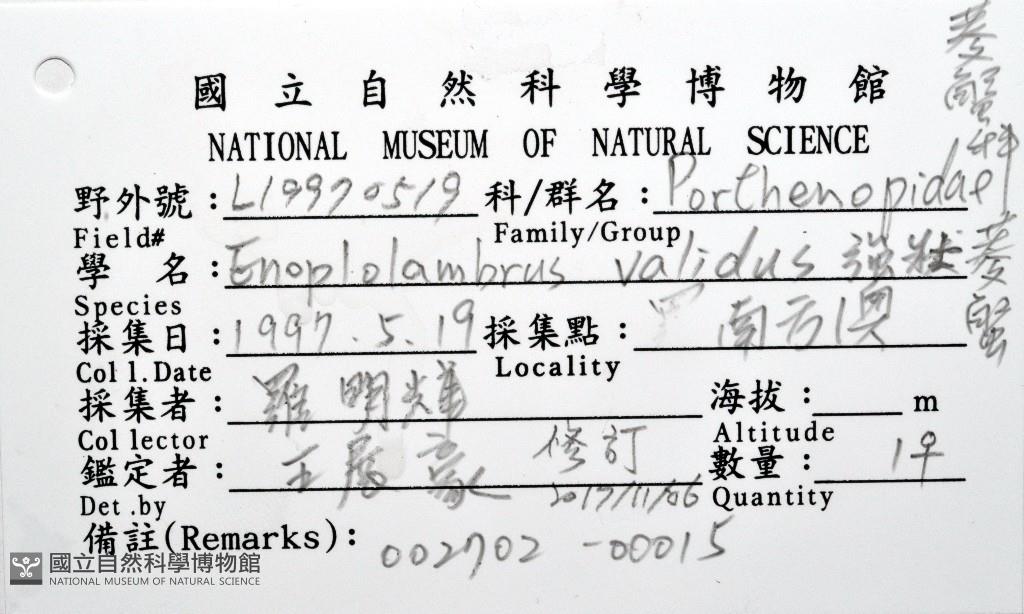 國立自然科學博物館
NATIONAL MUSEUM OF NATURAL SCIENCE
野外號：L19970519 科/群名：Porthenopidae 菱蟹科
Field# Family/Group
學 名：Enoplolambrus validus 強壯菱蟹
Species
採集日：1997.5.19 採集點：南方澳
Coll.Date Locality
採集者：羅明輝 海拔： m
Collector Altitude
鑑定者：王展豪 修訂 2017/11/06 數量：1♀
Det.by Quantity
備註(Remarks)：002702-00015
國立自然科學博物館
NATIONAL MUSEUM OF NATURAL SCIENCE